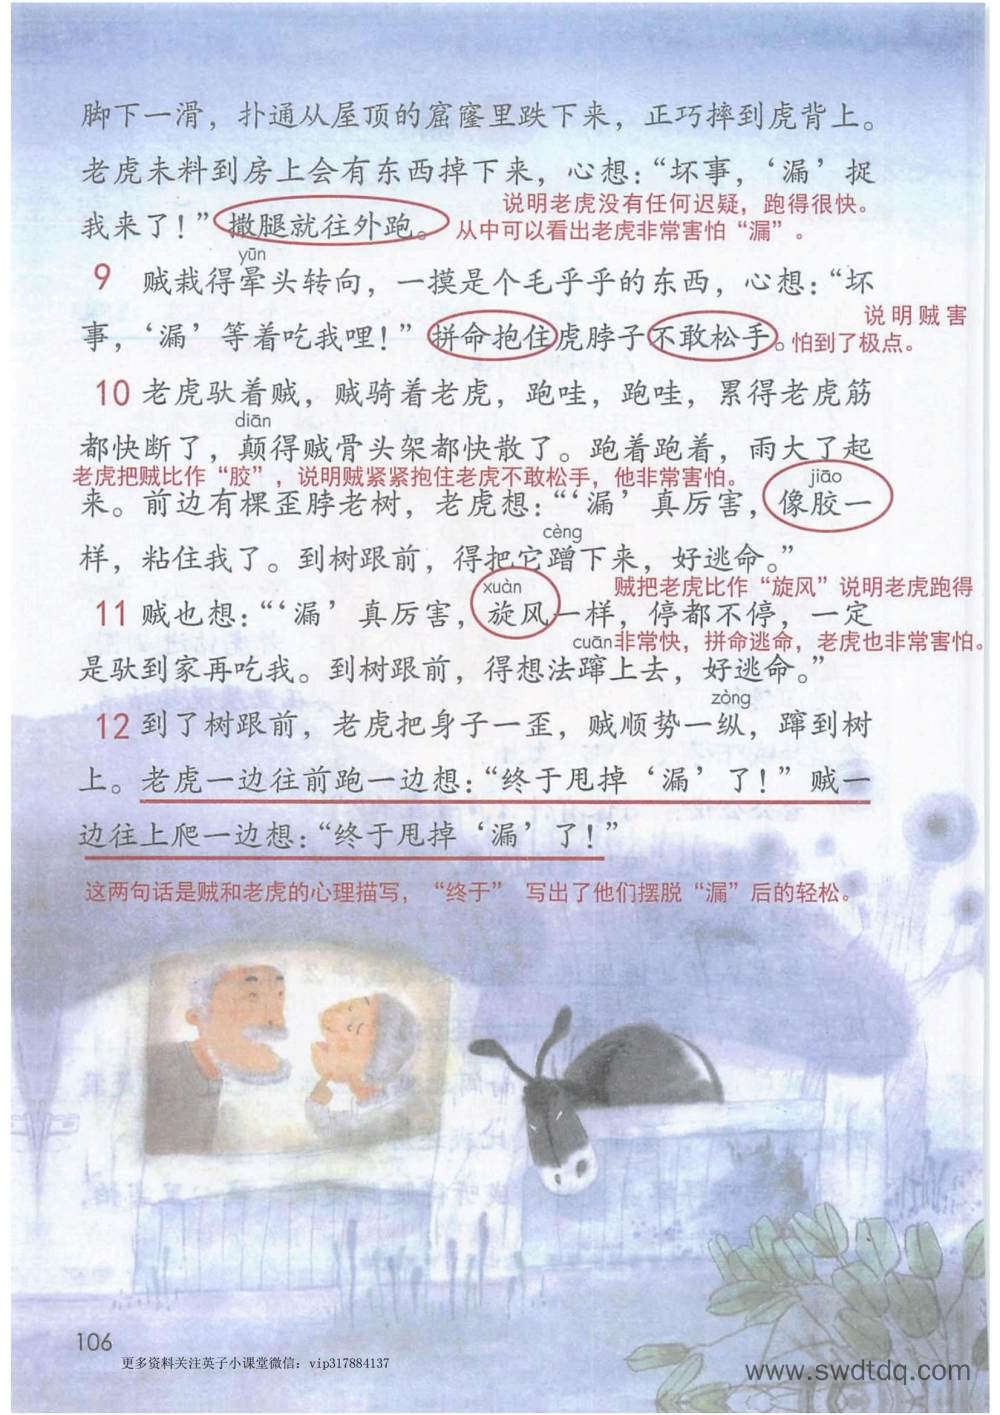 脚下一滑，扑通从屋顶的窟窿里跌下来，正巧摔到虎背上。
老虎未料到房上会有东西掉下来，心想：“坏事，‘漏’捉
说明老虎没有任何迟疑，跑得很快。
我来了！”撒腿就往外跑。
从中可以看出老虎非常害怕“漏”。
yūn
9 贼栽得晕头转向，一摸是个毛乎乎的东西，心想：“坏
说明贼害
事，‘漏’等着吃我哩！”拼命抱住虎脖子不敢松手。
怕到了极点。
10 老虎驮着贼，贼骑着老虎，跑哇，跑哇，累得老虎筋
diān
都快断了，颠得贼骨头架都快散了。跑着跑着，雨大了起
老虎把贼比作“胶”，说明贼紧紧抱住老虎不敢松手，他非常害怕。
jiāo
来。前边有棵歪脖老树，老虎想：“‘漏’真厉害，像胶一
cèng
样，粘住我了。到树跟前，得把它蹭下来，好逃命。”
xuàn
贼把老虎比作“旋风”说明老虎跑得
11 贼也想：“‘漏’真厉害，旋风一样，停都不停，一定
cuān
非常快，拼命逃命，老虎也非常害怕。
是驮到家再吃我。到树跟前，得想法蹿上去，好逃命。”
zòng
12 到了树跟前，老虎把身子一歪，贼顺势一纵，蹿到树
上。老虎一边往前跑一边想：“终于甩掉‘漏’了！”贼一
边往上爬一边想：“终于甩掉‘漏’了！”
这两句话是贼和老虎的心理描写，“终于” 写出了他们摆脱“漏”后的轻松。
106
更多资料关注英子小课堂微信：vip317884137
www.swdtdq.com